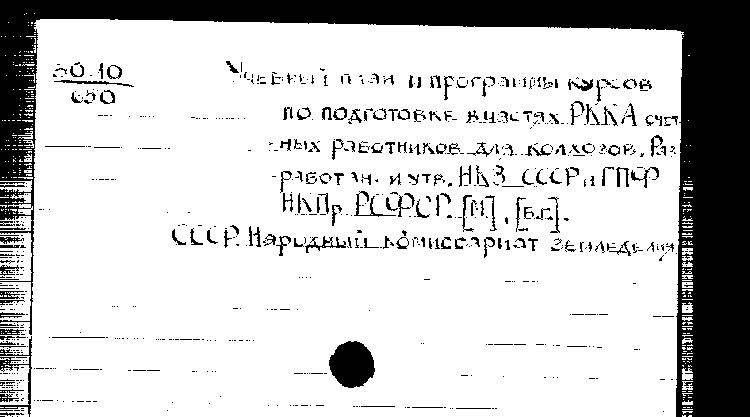 30.10
650
Учебный план и программы курсов
по подготовке в частях РККА счет
ных работников для колхозов. Раз
работан. и утв. НКЗ СССР и ГПФР
НКПр. РСФСР. [М], [б.г.].
СССР. Народный комиссариат земледелия